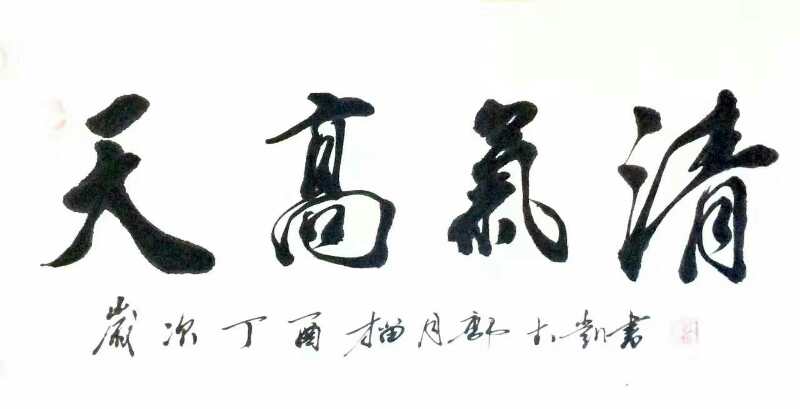 天高氣清
歲次丁酉榴月郭凱書